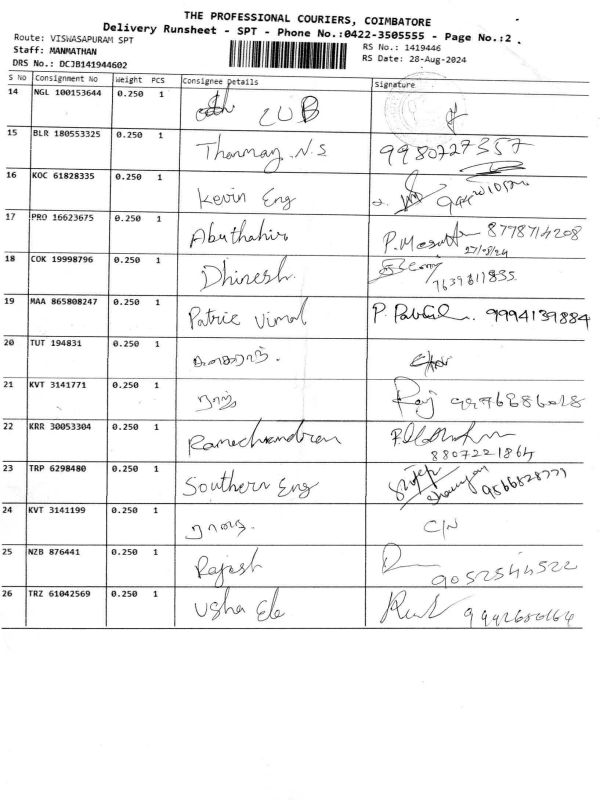 THE PROFESSIONAL COURIERS, COIMBATORE
Delivery Runsheet - SPT - Phone No.:0422-3505555 - Page No.:2
Route: VISWASAPURAM SPT
RS No.: 1419446
Staff: MANMATHAN
RS Date: 28-Aug-2024
DRS No.: DCJB141944602
S No Consignment No Weight PCS Consignee Details Signature
14 NGL 100153644 0.250 1 CUB
15 BLR 180553325 0.250 1 Thanmay .N.S 9980727357
16 KOC 61828335 0.250 1 Kevin Eng
17 PRO 16623675 0.250 1 Abuthahir 8778714208
27/08/24
18 COK 19998796 0.250 1 Dhinesh.
7639617835
19 MAA 865808247 0.250 1 Patric Vimal 9994139884
20 TUT 194831 0.250 1
21 KVT 3141771 0.250 1 ராஜ் Raj
22 KRR 30053304 0.250 1 Ramechandran
8807221864
23 TRP 6298480 0.250 1 Southern Eng 9566828771
24 KVT 3141199 0.250 1 C/N
25 NZB 876441 0.250 1 Rajesh
9052544522
26 TRZ 61042569 0.250 1 Usha Ele